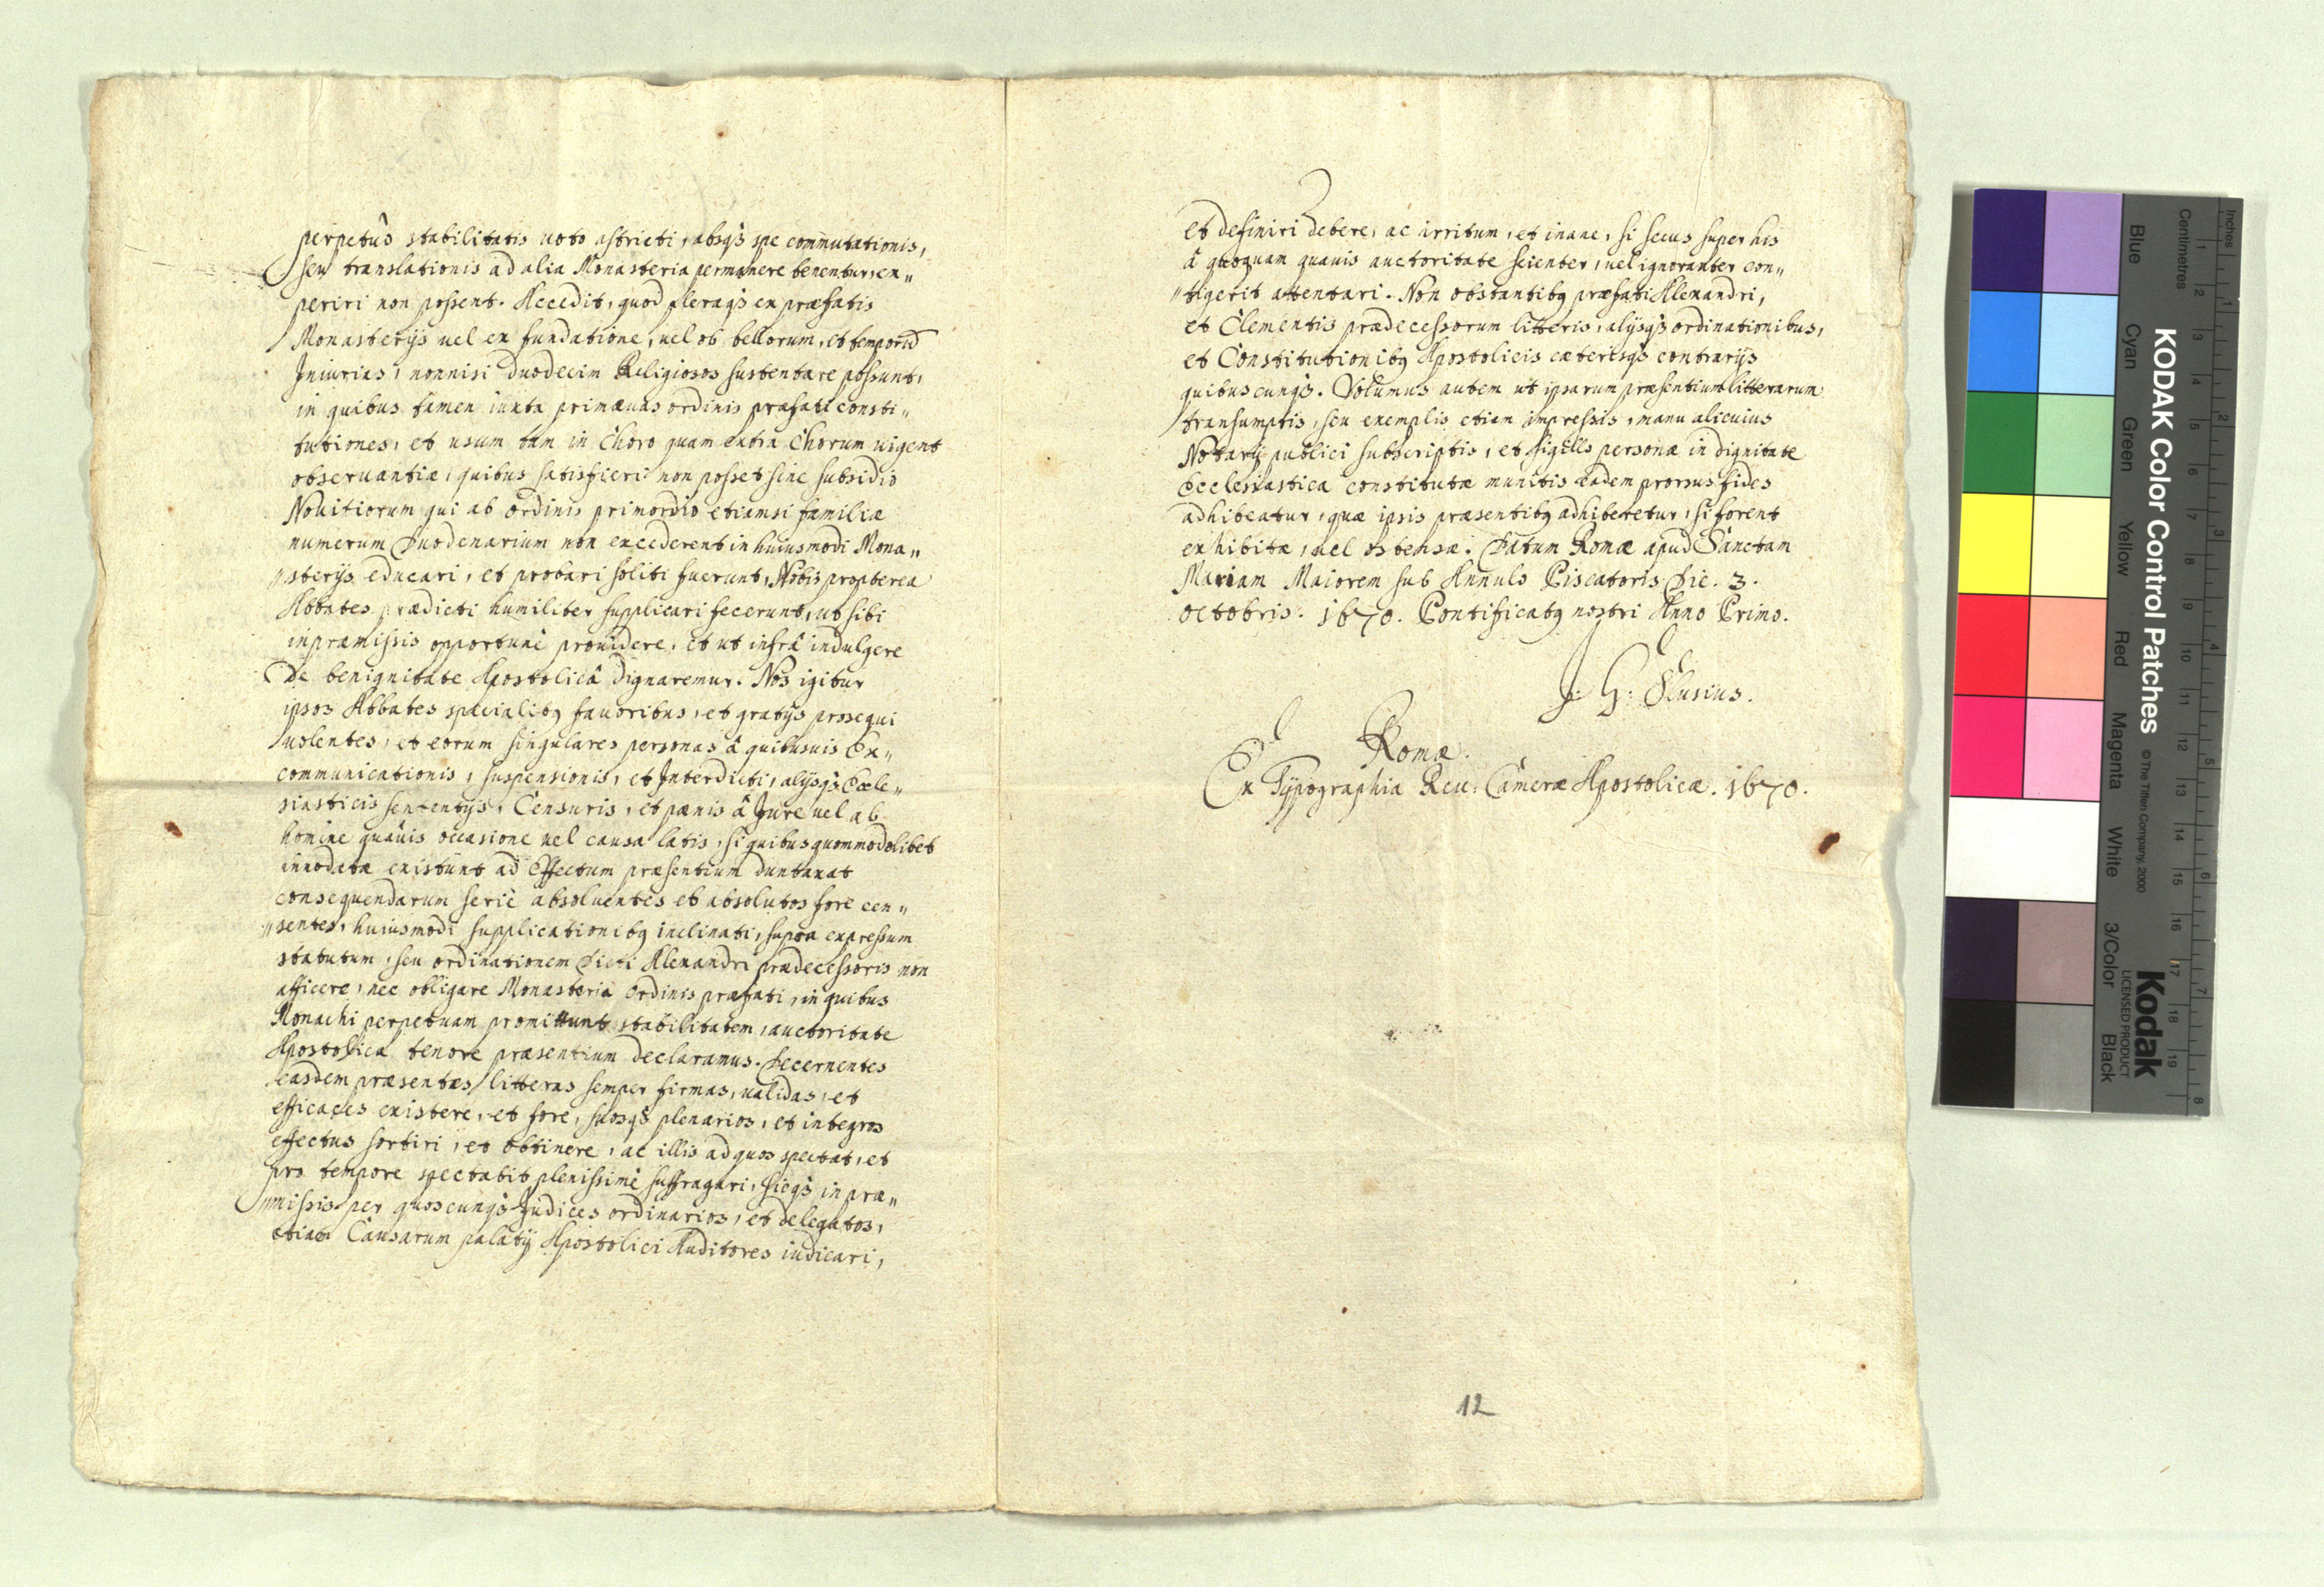 perpetuo stabilitatis uoto astricti, absq3 spe commutationis,
seu translationis ad alia Monasteria permanere tenentur, ex„
periri non possent. Accedit, quod pleraq3 ex præfatis
Monasterijs uel ex fundatione, uel ob bellorum, et temporũ
Iniurias, nonnisi duodecim Religiosos sustentare possunt,
in quibus tamen iuxta primæuas ordinis præfati consti„
tutiones, et usum tam in Choro quam extra Chorum uigent
obseruantiæ, quibus satisfieri non posset sine subsidio
Nouitiorum qui ab ordinis primordio etiamsi familiæ
numerum Duodenarium non excederent in huiusmodi Mona„
„sterijs educari, et probari soliti fuerunt, Nobis propterea
Abbates prædicti humiliter supplicari fecerunt, ut sibi
in præmissis opportunè prouidere, et ut infrà indulgere
de benignitate Apostolicâ dignaremur. Nos igitur
ipsos Abbates specialibq fauoribus, et gratijs prosequi
uolentes, et eorum singulares personas à quibusuis Ex„
communicationis, suspensionis, et Interdicti, alijsq3 Eccle„
siasticis sententijs, Censuris, et pænis à Jure uel ab
homine quâuis occasione uel causa latis, si quibus quommodolibet
innodatæ existunt ad Effectum præsentium duntaxat
consequendarum serie absoluentes et absolutos fore cen„
„sentes, huiusmodi supplicationibq inclinati, supra expressum
statutum, seu ordinationem Dicti Alexandri prædecessoris non
afficere, nec obligare Monasteria Ordinis præfati, in quibus
Monachi perpetuam promittunt stabilitatem, auctoritate
Apostolica tenore præsentium declaramus. Decernentes
easdem præsentes litteras semper firmas, ualidas, et
efficaces existere, et fore, suosq3 plenarios, et integros
effectus sortiri, et obtinere, ac illis ad quos spectat, et
pro tempore spectabit plenissimè suffragari, sicq3 in præ„
„missis per quoscunq3 Judices ordinarios, et delegatos,
etiam Causarum palatij Apostolici Auditores iudicari,
et definiri debere, ac irritum, et inane, si secus super his
à quoquam quauis auctoritate scienter, uel ignoranter con„
„tigerit attentari. Non obstantibq præfati Alexandri,
et Clementis prædecessorum litteris, alijsq3 ordinationibus,
et Constitutionibq Apostolicis cæterisq3 contrarijs
quibuscunq3. Volumus autem ut ipsarum præsentium litterarum
transumptis, seu exemplis etiam impressis, manu alicuius
Notarij publici subscriptis, et sigillo personæ in dignitate
Ecclesiastica constitutæ munitis eadem prorsus fides
adhibeatur, quæ ipsis præsentibq adhiberetur, si forent
exhibitæ, uel ostensæ. Datum Romæ apud Sanctam
Mariam Maiorem sub Annulo Piscatoris Die. 3.
Octobris. 1670. Pontificatq nostri Anno Primo.
J: G: Slusius.
Romæ.
Ex Typographia Reu: Cameræ Apostolicæ. 1670.
12
KODAK Color Control Patches
© The Tiffen Company, 2000
Kodak
LICENSED PRODUCT
Inches
Centimetres
Blue
Cyan
Green
Yellow
Red
Magenta
White
3/Color
Black
1 2 3 4 5 6 7 8 9 10 11 12 13 14 15 16 17 18 19
1 2 3 4 5 6 7 8